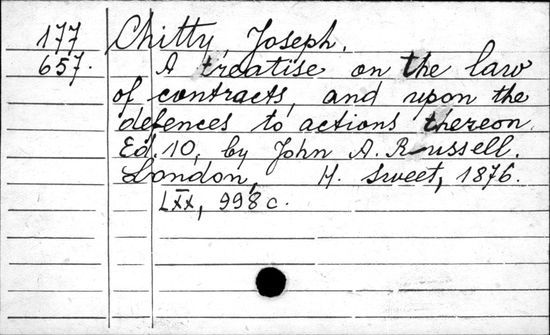 177 Chitty, Joseph.
657. A treatise on the law
of contracts, and upon the
defences to actions thereon.
Ed. 10, by John A. Russell.
London, H. Sweet, 1876.
Lxx, 998 c.